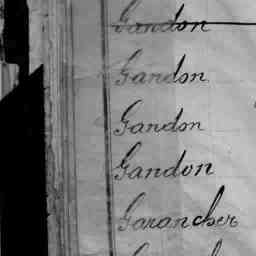 Gandon
Gandon
Gandon
Gandon
Garancher